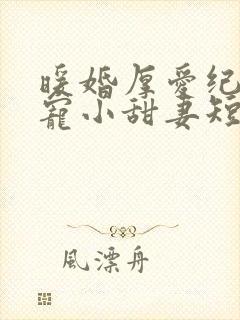 暖婚厚愛纪
寵小甜妻短
風漂舟